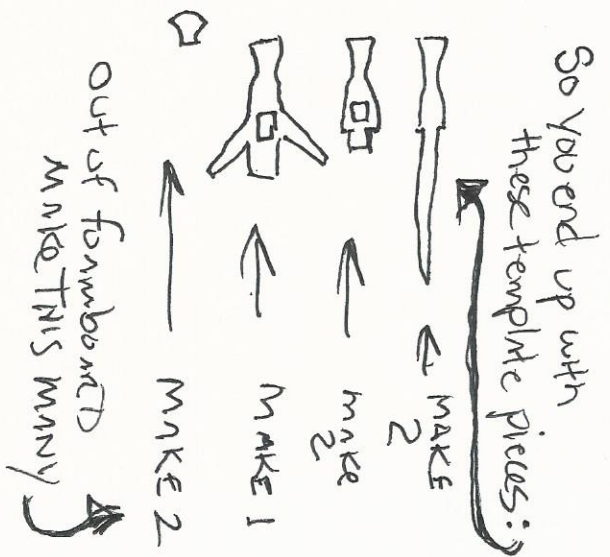 So you end up with
these template pieces:
MAKE
2
make
2
MAKE 1
MAKE 2
out of foamboard
make THIS MANY